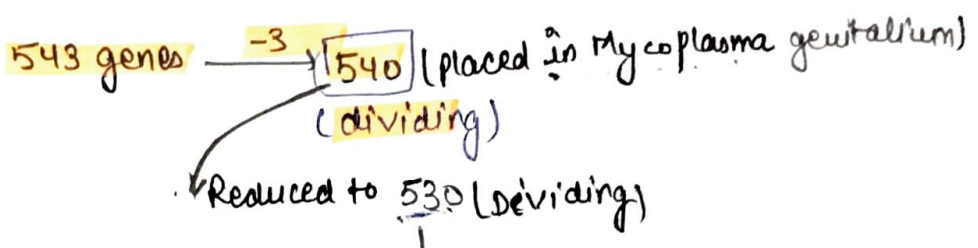 543 genes -3 → 540 (placed in Mycoplasma genitalium)
(dividing)
Reduced to 530 (Deviding)